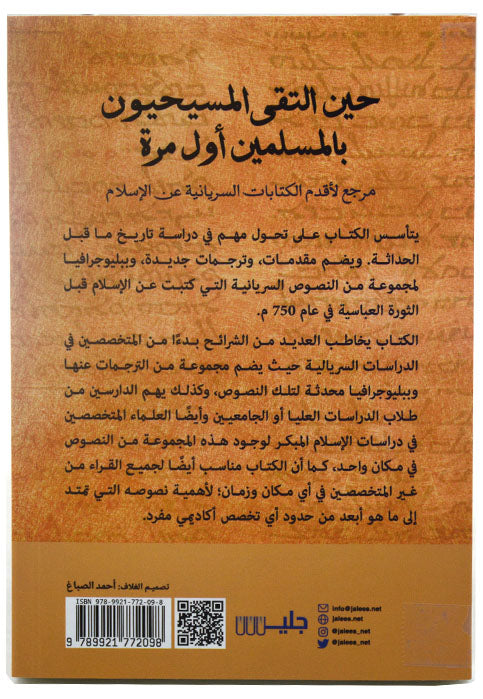 حين التقى المسيحيون
بالمسلمين أول مرة
مرجع لأقدم الكتابات السريانية عن الإسلام
يتأسس الكتاب على تحول مهم في دراسة تاريخ ما قبل
الحداثة. ويضم مقدمات، وترجمات جديدة، وببليوجرافيا
لمجموعة من النصوص السريانية التي كتبت عن الإسلام قبل
الثورة العباسية في عام 750 م.
الكتاب يخاطب العديد من الشرائح بدءًا من المتخصصين في
الدراسات السريالية حيث يضم مجموعة من الترجمات عنها
وببليوجرافيا محدثة لتلك النصوص، وكذلك يهم الدارسين من
طلاب الدراسات العليا أو الجامعيين وأيضًا العلماء المتخصصين
في دراسات الإسلام المبكر لوجود هذه المجموعة من النصوص
في مكان واحد، كما أن الكتاب مناسب أيضًا لجميع القراء من
غير المتخصصين في أي مكان وزمان؛ لأهمية نصوصه التي تمتد
إلى ما هو أبعد من حدود أي تخصص أكاديمي مفرد.
تصميم الغلاف: أحمد الصباغ
ISBN 978-9921-772-09-8
9 789921 772098
جليس
info@jalees.net
@jalees_net
@jalees_net